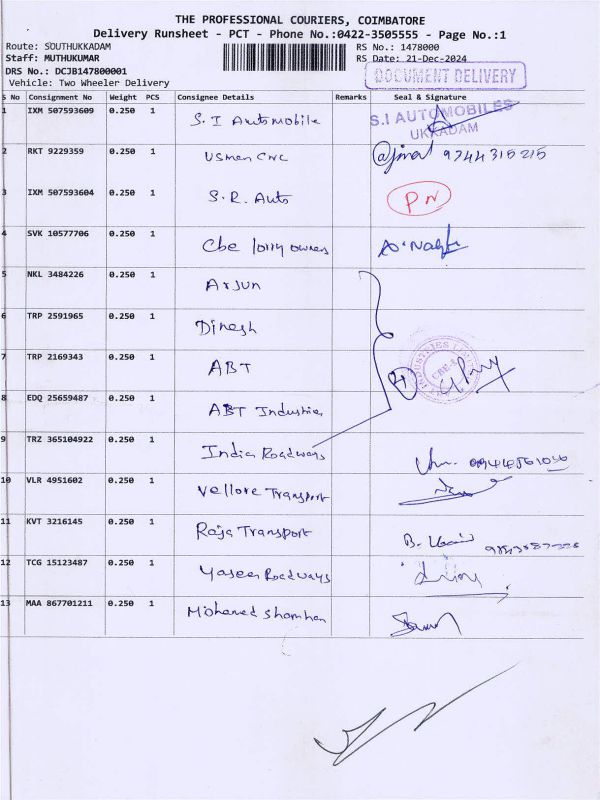 THE PROFESSIONAL COURIERS, COIMBATORE
Delivery Runsheet - PCT - Phone No.:0422-3505555 - Page No.:1
Route: SOUTHUKKADAM RS No.: 1478000
Staff: MUTHUKUMAR RS Date: 21-Dec-2024
DRS No.: DCJB147800001 DOCUMENT DELIVERY
Vehicle: Two Wheeler Delivery
S No Consignment No Weight PCS Consignee Details Remarks Seal & Signature
1 IXM 507593609 0.250 1 S.I Automobile S.I AUTOMOBILES
UKKADAM
2 RKT 9229359 0.250 1 Usman CNC 9744315215
3 IXM 507593604 0.250 1 S.R. Auto PN
4 SVK 10577706 0.250 1 Cbe lorry owners
5 NKL 3484226 0.250 1 Arjun
6 TRP 2591965 0.250 1 Dinesh
7 TRP 2169343 0.250 1 ABT
8 EDQ 25659487 0.250 1 ABT Industries
9 TRZ 365104922 0.250 1 India Roadways
10 VLR 4951602 0.250 1 Vellore Transport
11 KVT 3216145 0.250 1 Raja Transport
12 TCG 15123487 0.250 1 Yaseen Roadways
13 MAA 867701211 0.250 1 Mohamed